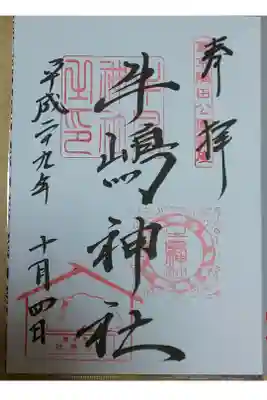 奉拝
牛嶋神社
平成二十九年
十月四日